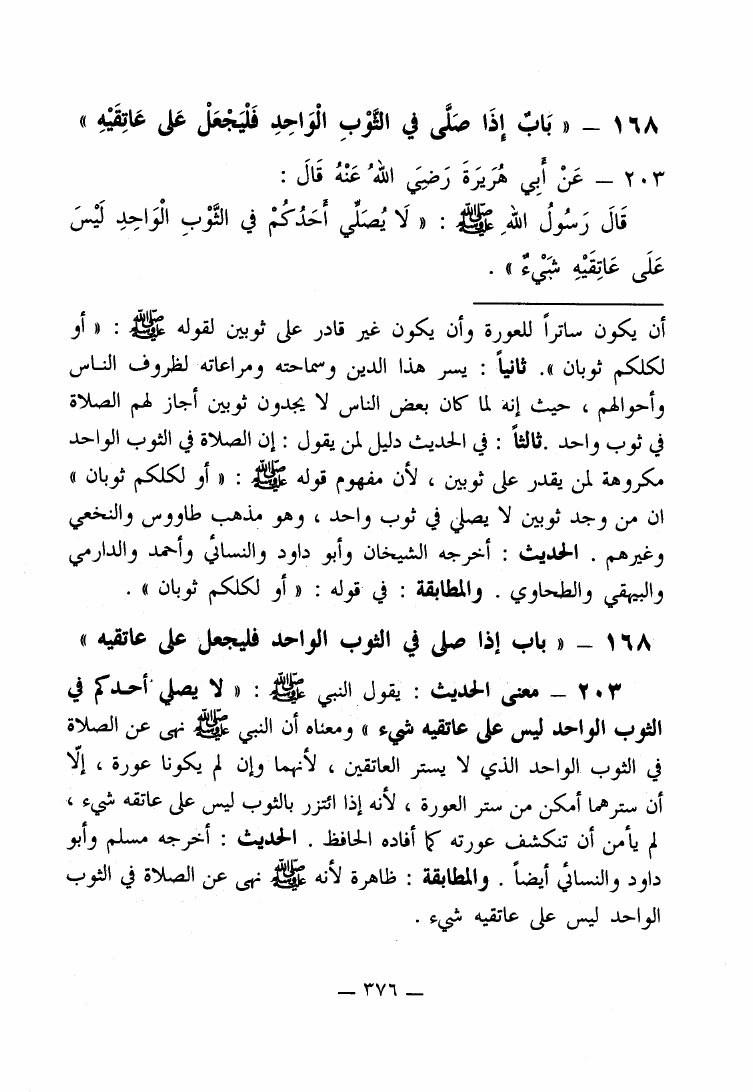 ١٦٨ – « بَابٌ إِذَا صَلَّى في الثَّوْبِ الْوَاحِدِ فَلْيَجْعَلْ عَلى عَاتِقَيْهِ »
٢٠٣ – عَنْ أَبِي هُرَيرَةَ رَضِيَ اللهُ عَنْهُ قَالَ :
قَالَ رَسُولُ اللهِ ﷺ : « لَا يُصَلِّي أَحَدُكُمْ في الثَّوْبِ الْوَاحِدِ لَيْسَ
عَلَى عَاتِقَيْهِ شَيْءٌ » .
أن يكون ساتراً للعورة وأن يكون غير قادر على ثوبين لقوله ﷺ : « أو
لكلكم ثوبان ». ثانياً : يسر هذا الدين وسماحته ومراعاته لظروف الناس
وأحوالهم ، حيث إنه لما كان بعض الناس لا يجدون ثوبين أجاز لهم الصلاة
في ثوب واحد .ثالثاً : في الحديث دليل لمن يقول : إن الصلاة في الثوب الواحد
مكروهة لمن يقدر على ثوبين ، لأن مفهوم قوله ﷺ : « أو لكلكم ثوبان »
ان من وجد ثوبين لا يصلي في ثوب واحد ، وهو مذهب طاووس والنخعي
وغيرهم . الحديث : أخرجه الشيخان وأبو داود والنسائي وأحمد والدارمي
والبيهقي والطحاوي . والمطابقة : في قوله : « أو لكلكم ثوبان » .
١٦٨ – « باب إذا صلى في الثوب الواحد فليجعل على عاتقيه »
٢٠٣ – معنى الحديث : يقول النبي ﷺ : « لا يصلي أحدكم في
الثوب الواحد ليس على عاتقيه شيء » ومعناه أن النبي ﷺ نهى عن الصلاة
في الثوب الواحد الذي لا يستر العاتقين ، لأنهما وإن لم يكونا عورة ، إلّا
أن سترهما أمكن من ستر العورة ، لأنه إذا ائتزر بالثوب ليس على عاتقه شيء ،
لم يأمن أن تنكشف عورته كما أفاده الحافظ . الحديث : أخرجه مسلم وأبو
داود والنسائي أيضاً . والمطابقة : ظاهرة لأنه ﷺ نهى عن الصلاة في الثوب
الواحد ليس على عاتقيه شيء .
– ٣٧٦ –